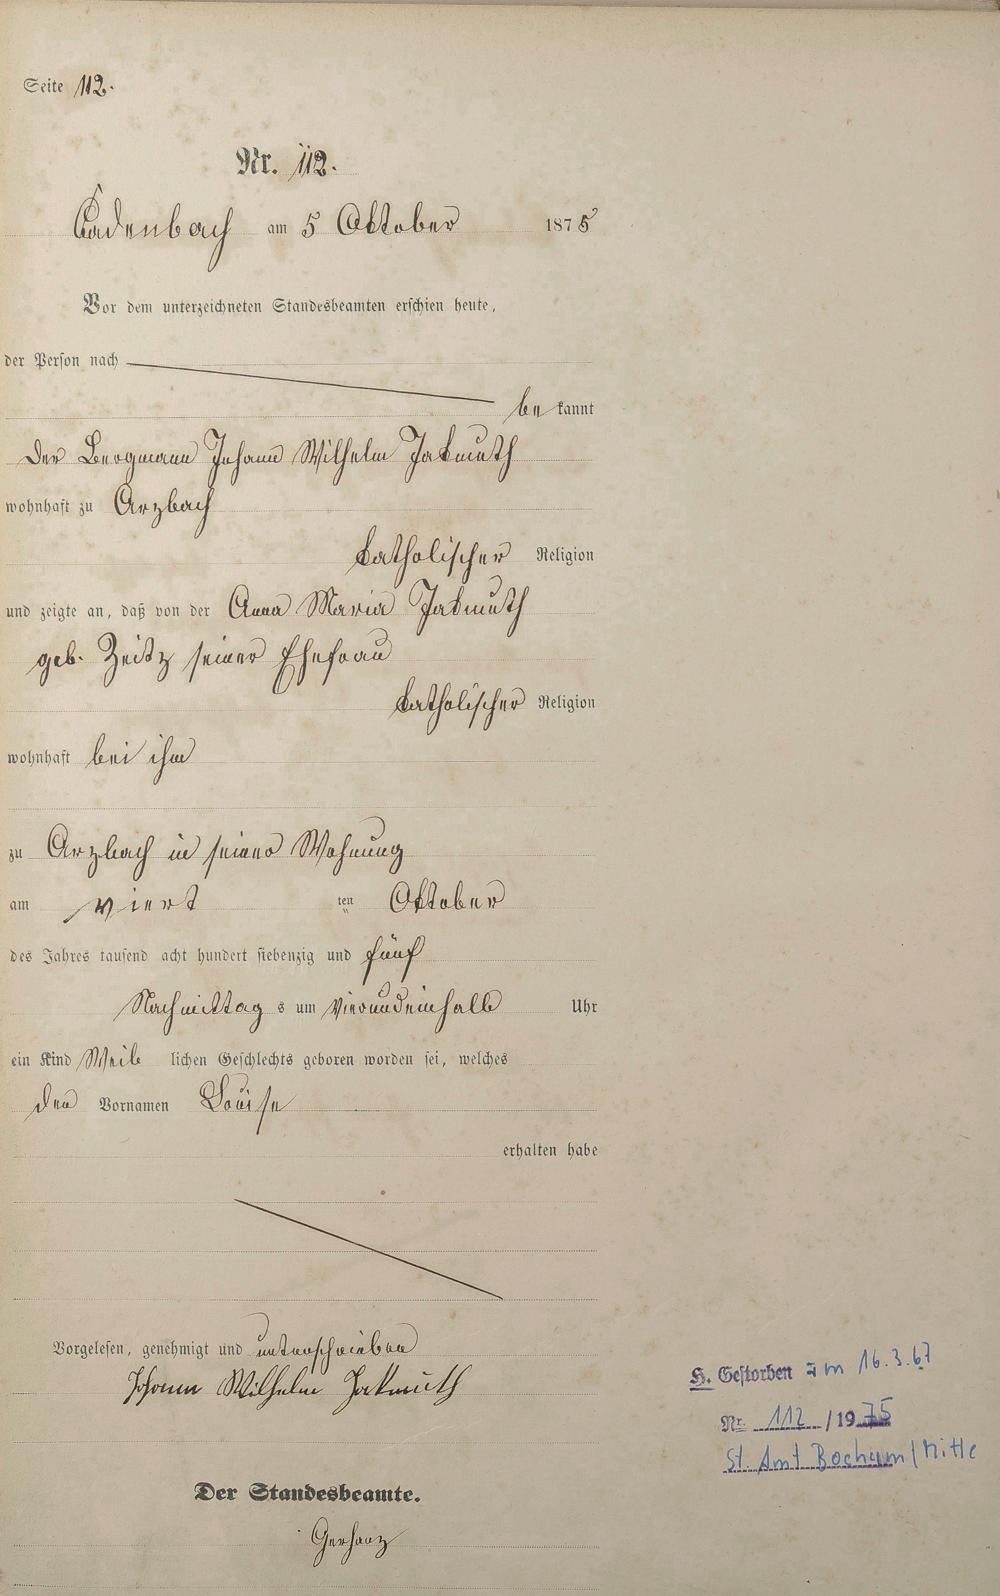 Seite 112.
Nr. 112.
Cadenbach am 5 Oktober 1875
Vor dem unterzeichneten Standesbeamten erschien heute,
der Person nach
be kannt
der Bergmann Johann Wilhelm Jakmuth
wohnhaft zu Arzbach
katholischer Religion
und zeigte an, daß von der Anna Maria Jakmuth
geb. Zeitz seiner Ehefrau
katholischer Religion
wohnhaft bei ihm
zu Arzbach in seiner Wohnung
am viert ten Oktober
des Jahres tausend acht hundert siebenzig und fünf
Nachmittag s um vierundeinhalb Uhr
ein Kind Weib lichen Geschlechts geboren worden sei, welches
den Vornamen Louise
erhalten habe
Vorgelesen, genehmigt und unterschrieben
Johann Wilhelm Jakmuth
H. Gestorben am 16.3.67
Nr. 112 / 19 75
St. Amt Bochum/Mitte
Der Standesbeamte.
Gerharz